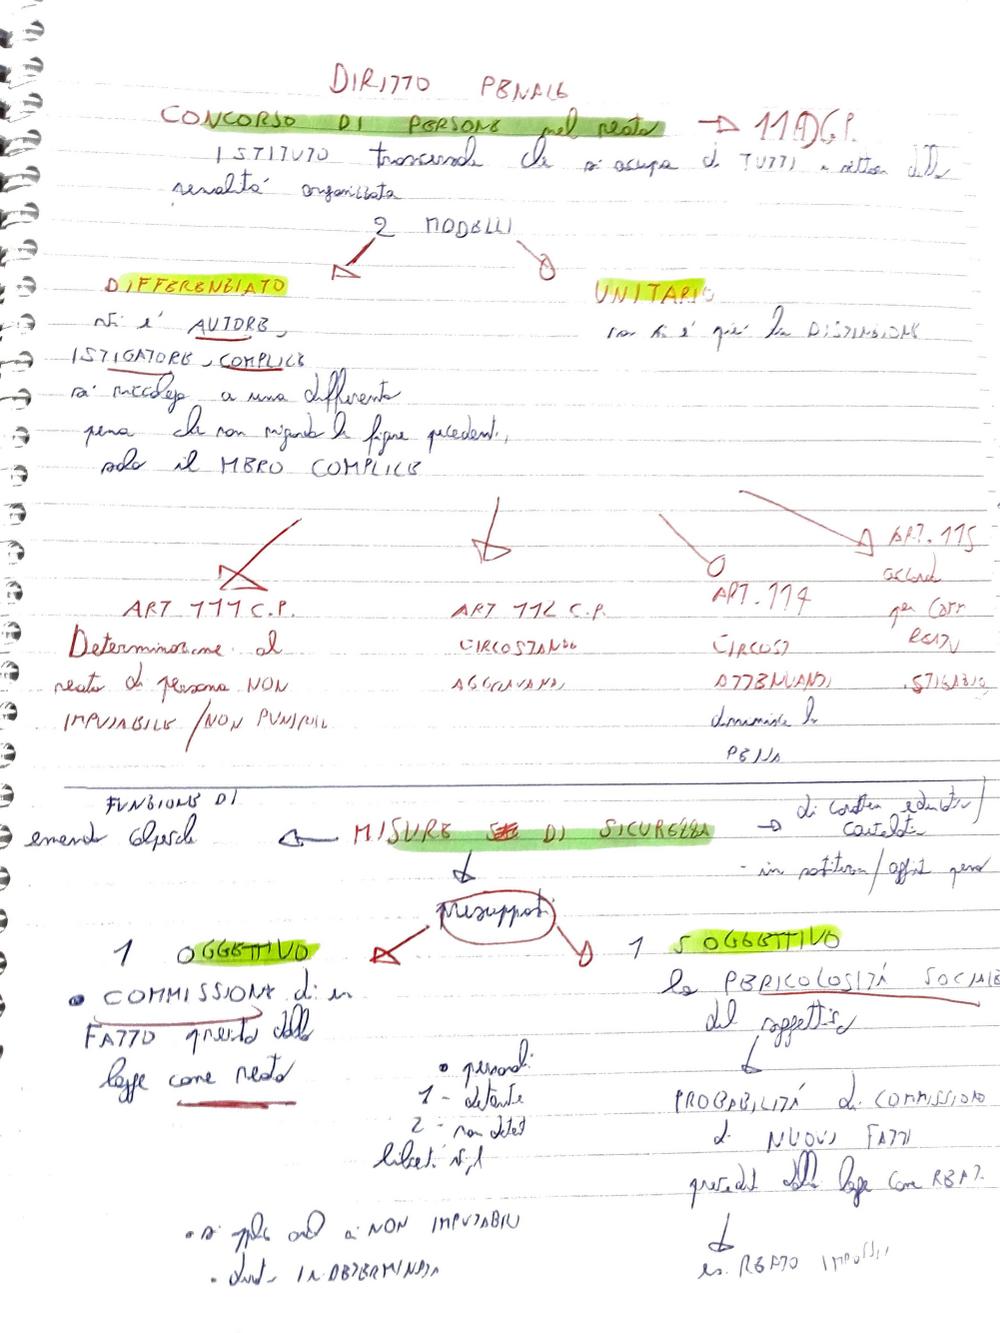 DIRITTO PENALE
CONCORSO DI PERSONE nel reato → 110 C.P.
ISTITUTO trasversale che si occupa di TUTTI
realtà organizzata
2 MODELLI
DIFFERENZIATO
UNITARIO
Vi è AUTORE,
non vi è la DISTINZIONE
ISTIGATORE, COMPLICE
si a una differente
pena che non riguarda le figure precedenti,
solo il MERO COMPLICE
ART. 115
accordo
per comm
REATO
ISTIGAZIO
ART 111 C.P.
Determinazione al
reato di persona NON
IMPUTABILE / NON PUNIBILE
ART 112 C.P.
CIRCOSTANZE
AGGRAVANTI
ART. 114
CIRCOST
ATTENUANTI
diminuisce la
PENA
FUNZIONE DI
emenda
← MISURE DI SICUREZZA →
di carattere educativo/
cautelative
- in sostituzione/ pena
presupposti
1 OGGETTIVO
• COMMISSIONE di un
FATTO previsto dalla
legge come reato
1 SOGGETTIVO
la PERICOLOSITÁ SOCIALE
del soggetto
PROBABILITÁ di COMMISSIONE
di NUOVI FATTI
dalla legge come REAT.
es. REATO IMPOSSI
• personali
1 - detente
2 - non detet
libert. vigil
• si applic anch ai NON IMPUTABILI
• durata INDETERMINATA